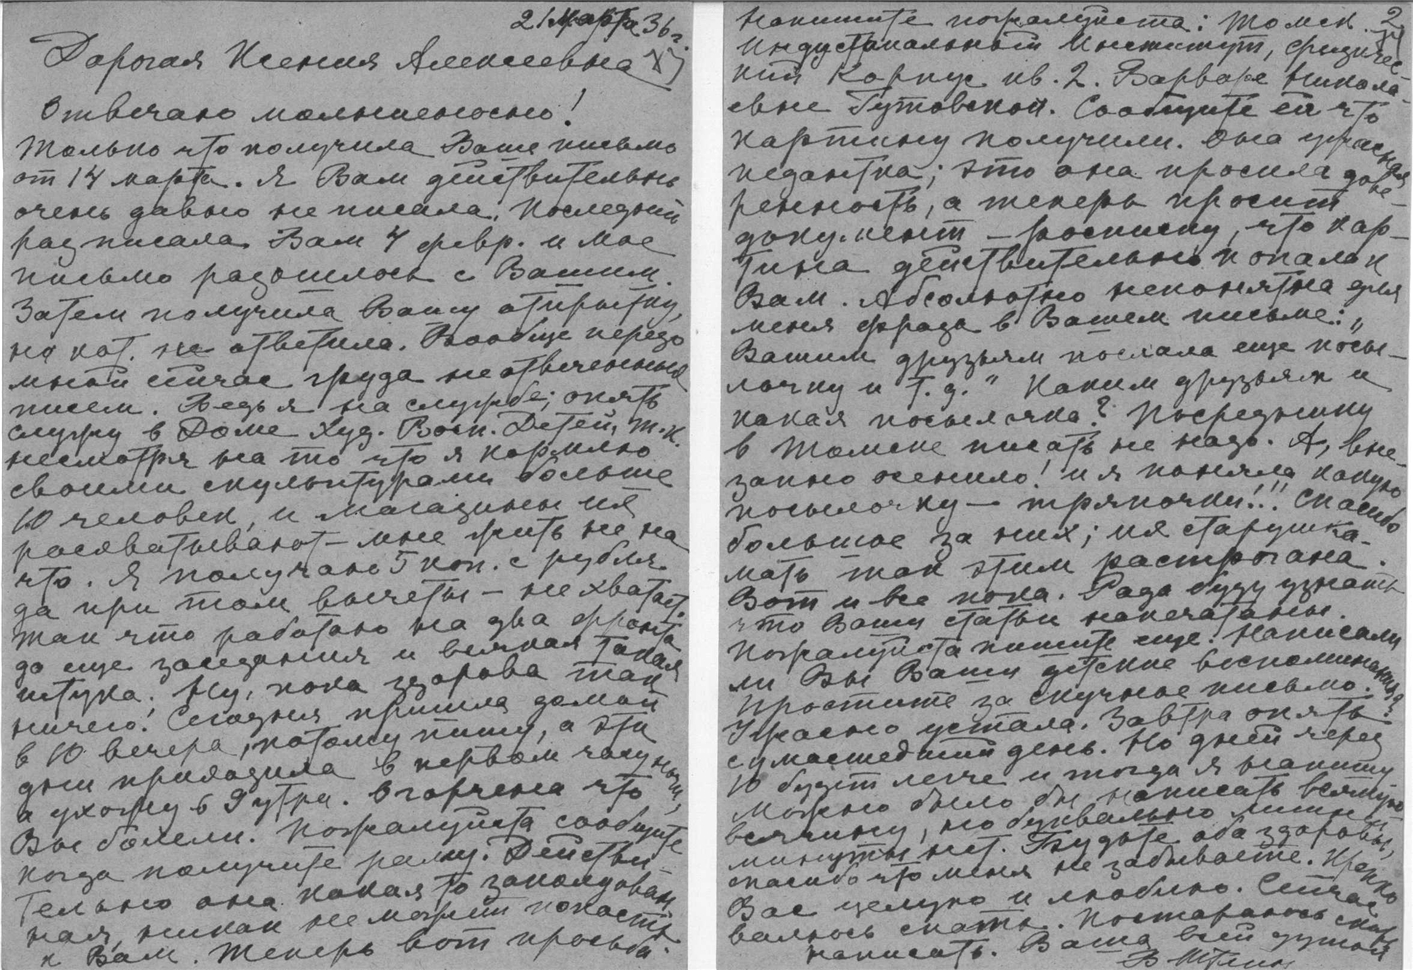 21 марта 36 г.
Дарогая Ксения Алексеевна
Отвечаю молниеносно!
Только что получила Ваше письмо
от 14 марта. Я Вам действительно
очень давно не писала. Последний
раз писала Вам 4 февр. и мое
письмо разошлось с Вашим.
Затем получила Вашу открытку,
на кот. не ответила. Вообще передо
мной сейчас груда неотвеченных
писем. Ведь я на службе; опять
служу в Доме Худ. Восп. Детей, т.к.
несмотря на то что я кормлю
своими скульптурами больше
10 человек, и магазины их
расхватывают — мне жить не на
что. Я получаю 5 коп. с рубля
да при том вычеты — не хватает.
Так что работаю на два фронта
да еще заседания и всякая такая
штука. Ну, пока здорова так
ничего! Сегодня пришла домой
в 10 вечера, потому пишу, а эти
дни приходила в первом часу ночи,
а ухожу в 9 утра. Огорчена что
Вы болели. Пожалуйста сообщите
когда получите раму. Действи-
тельно она какая то заколдован
ная, никак не может попасть
к Вам. Теперь вот просьба:
2
Напишите пожалуйста: Томск.
Индустриальный Институт, физичес-
кий Корпус кв. 2. Варваре Никола-
евне Гутовской. Сообщите ей что
картину получили. Она ужасная
педантка; это она просила дове-
ренность, а теперь просит
документ — расписку, что кар-
тина действительно попала к
Вам. Абсолютно непонятна для
меня фраза в Вашем письме: „
Вашим друзьям послала еще посы-
лочку и т.д." Каким друзьям и
какая посылочка? Посреднику
в Томске писать не надо. А, вне-
запно осенило! и я поняла какую
посылочку — тряпочки!!! Спасибо
большое за них; их старушка-
мать так этим растрогана.
Вот и все пока. Рада буду узнать
что Ваши статьи напечатаны.
Пожалуйста пишите еще. Написали
ли Вы Ваши детские воспоминания?
Простите за скучное письмо.
Ужасно устала. Завтра опять
сумасшедший день. Но дней через
10 будет легче и тогда я напишу
Можно было бы написать всякую
всячину, но буквально лишней
минуты нет. Будьте оба здоровы,
спасибо что меня не забываете. Крепко
Вас целую и люблю. Сейчас
валюсь спать. Постараюсь скоро
написать. Ваша всей душой